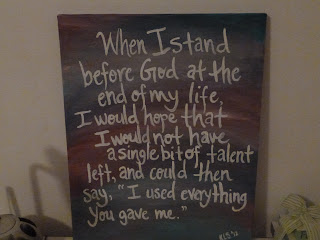 When I stand
before God at the
end of my life,
I would hope that
I would not have
a single bit of talent
left, and could then
say, "I used everything
You gave me."